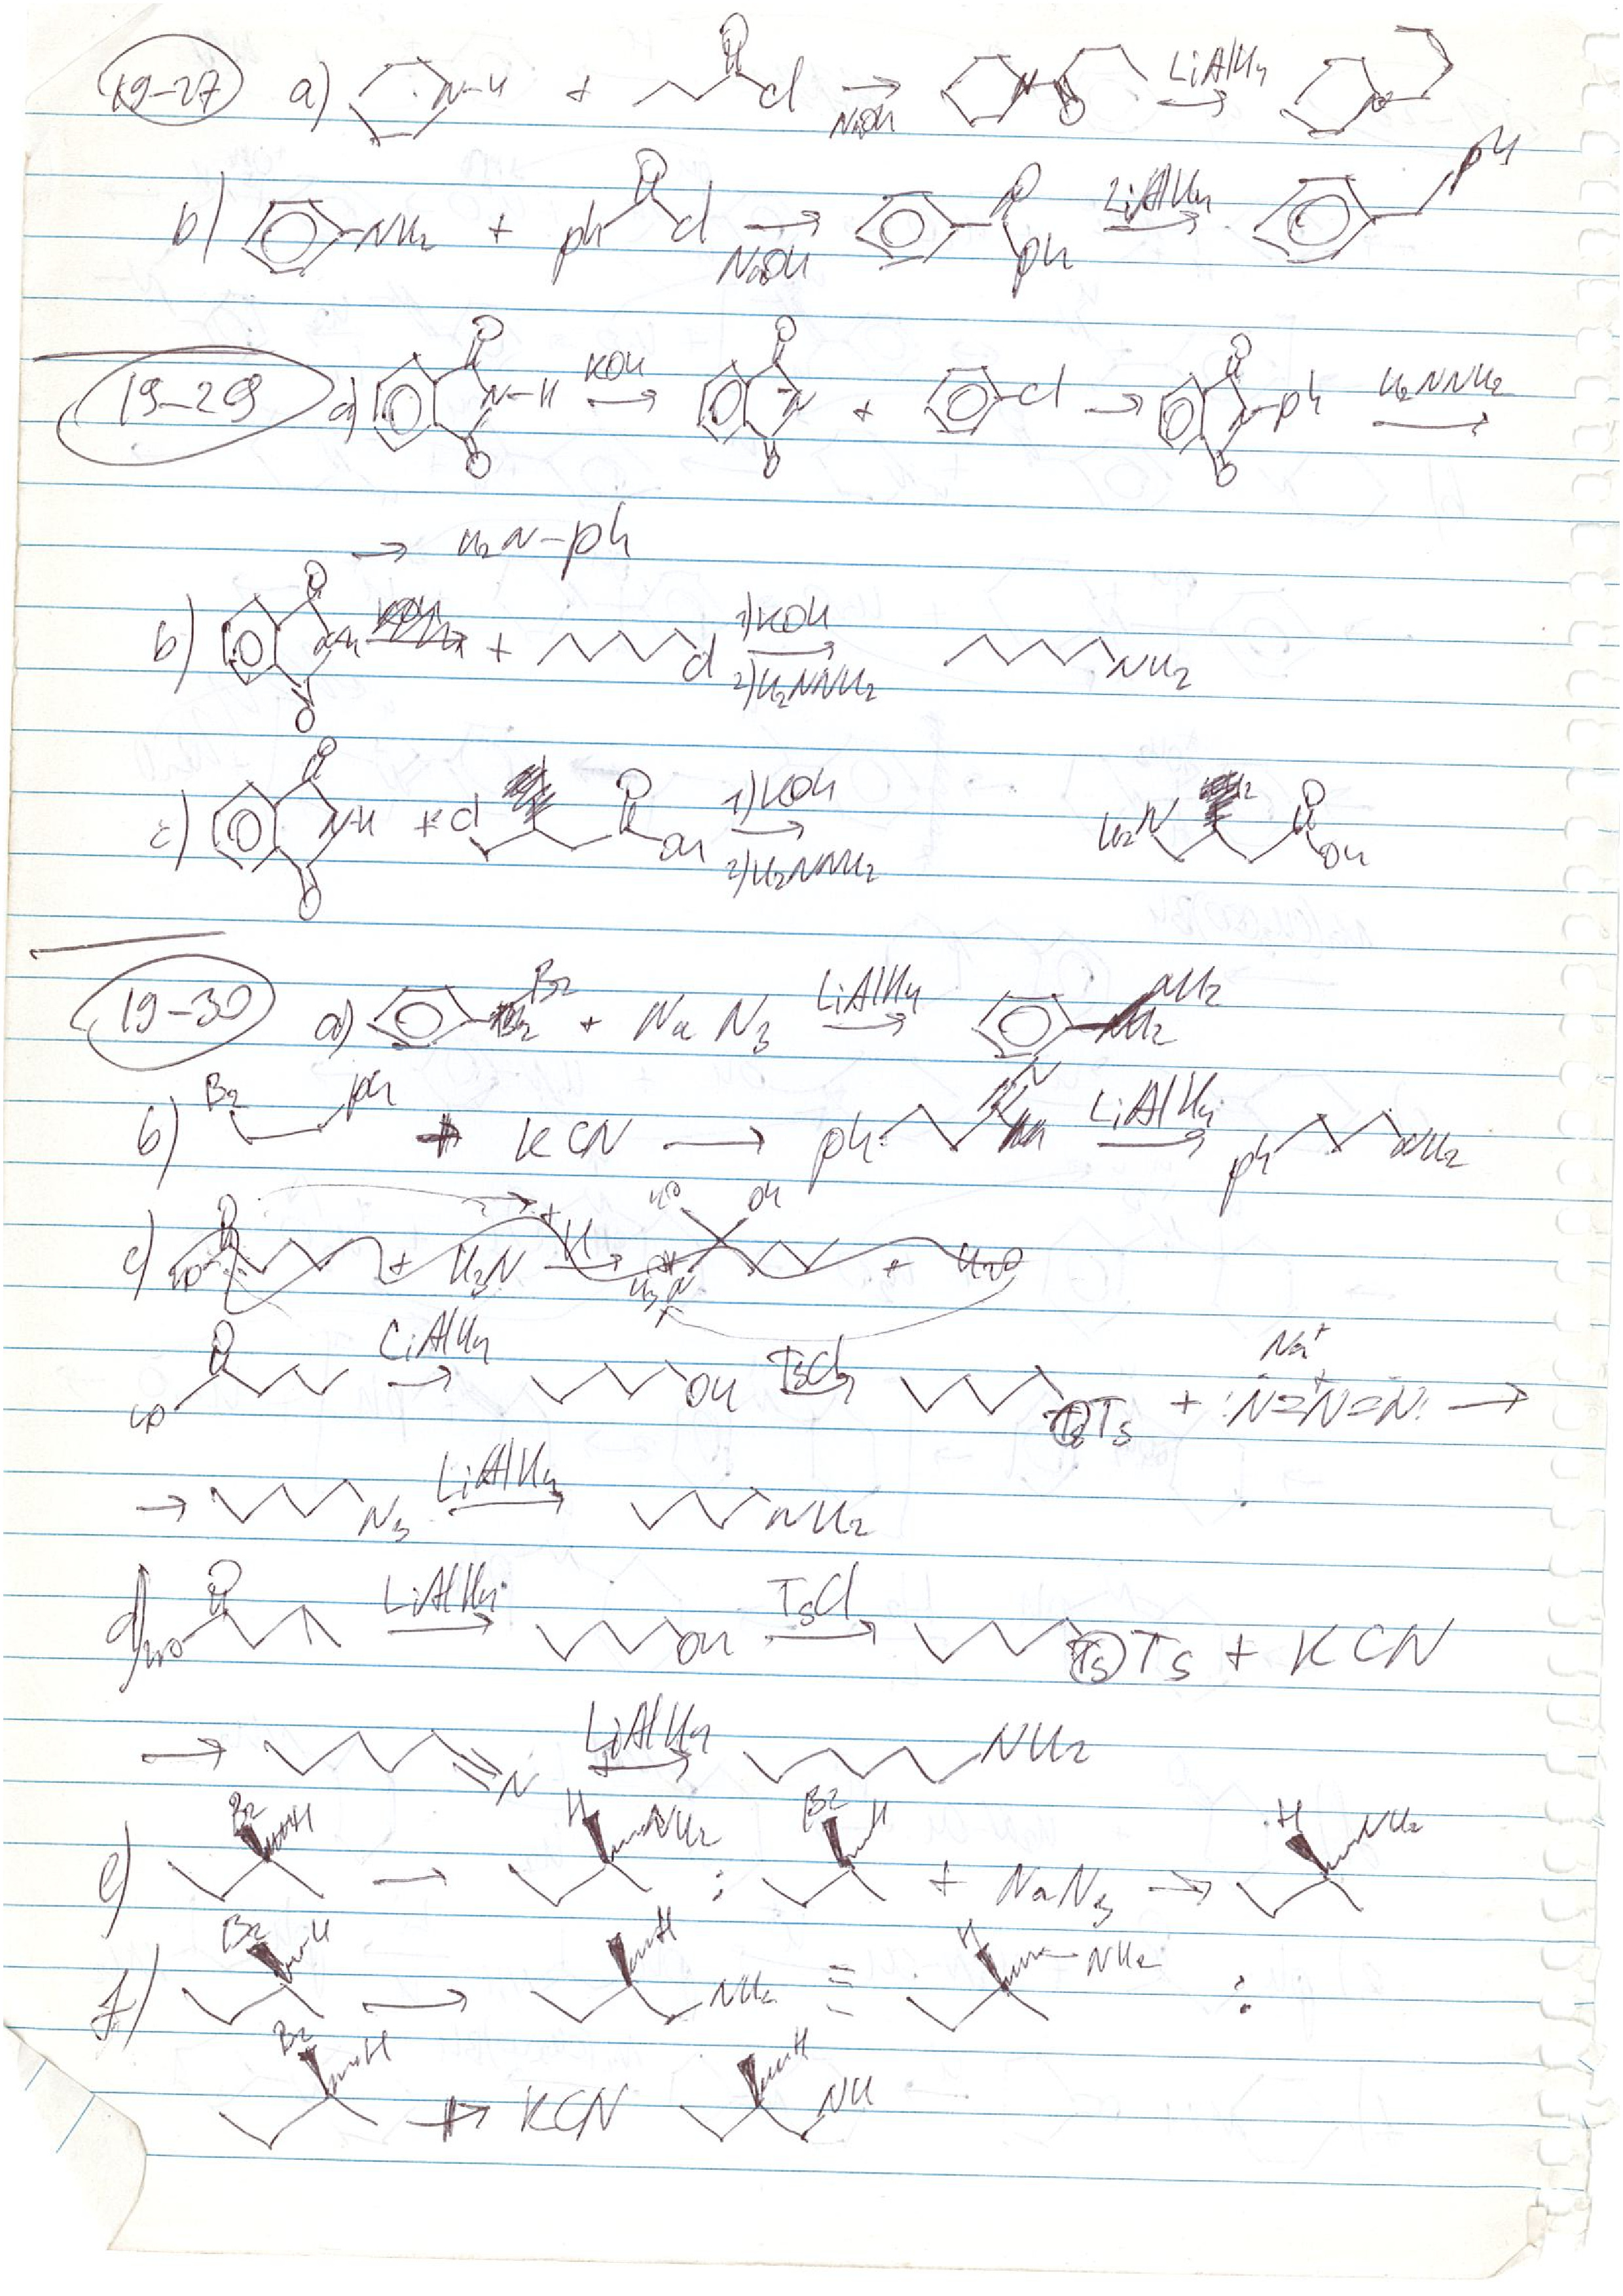 19-27 a) N-H + O Cl → NaOH N O LiAlH4 → N
b) NH2 + Ph O Cl → NaOH O Ph LiAlH4 → Ph
19-29 a) O N-H O KOH → O N O + Cl → O N-Ph O H2NNH2 →
→ H2N-Ph
b) O NH O + Cl 1) KOH → 2) H2NNH2 NH2
c) O N-H O + Cl O OH 1) KOH → 2) H2NNH2 H2N O OH
19-30 a) Br + NaN3 LiAlH4 → NH2
b) Br Ph + KCN → Ph N LiAlH4 → Ph NH2
c) HO O + H3N H+ → HO OH H3N + H2O
HO O LiAlH4 → OH TsCl → OTs + Na+ :N=N+=N: →
→ N3 LiAlH4 → NH2
d) HO O LiAlH4 → OH TsCl → OTs + KCN
→ N LiAlH4 → NH2
e) Br H → H NH2 : Br H + NaN3 → H NH2
f) Br H → H NH2 ≡ H NH2 :
Br H → KCN H NH